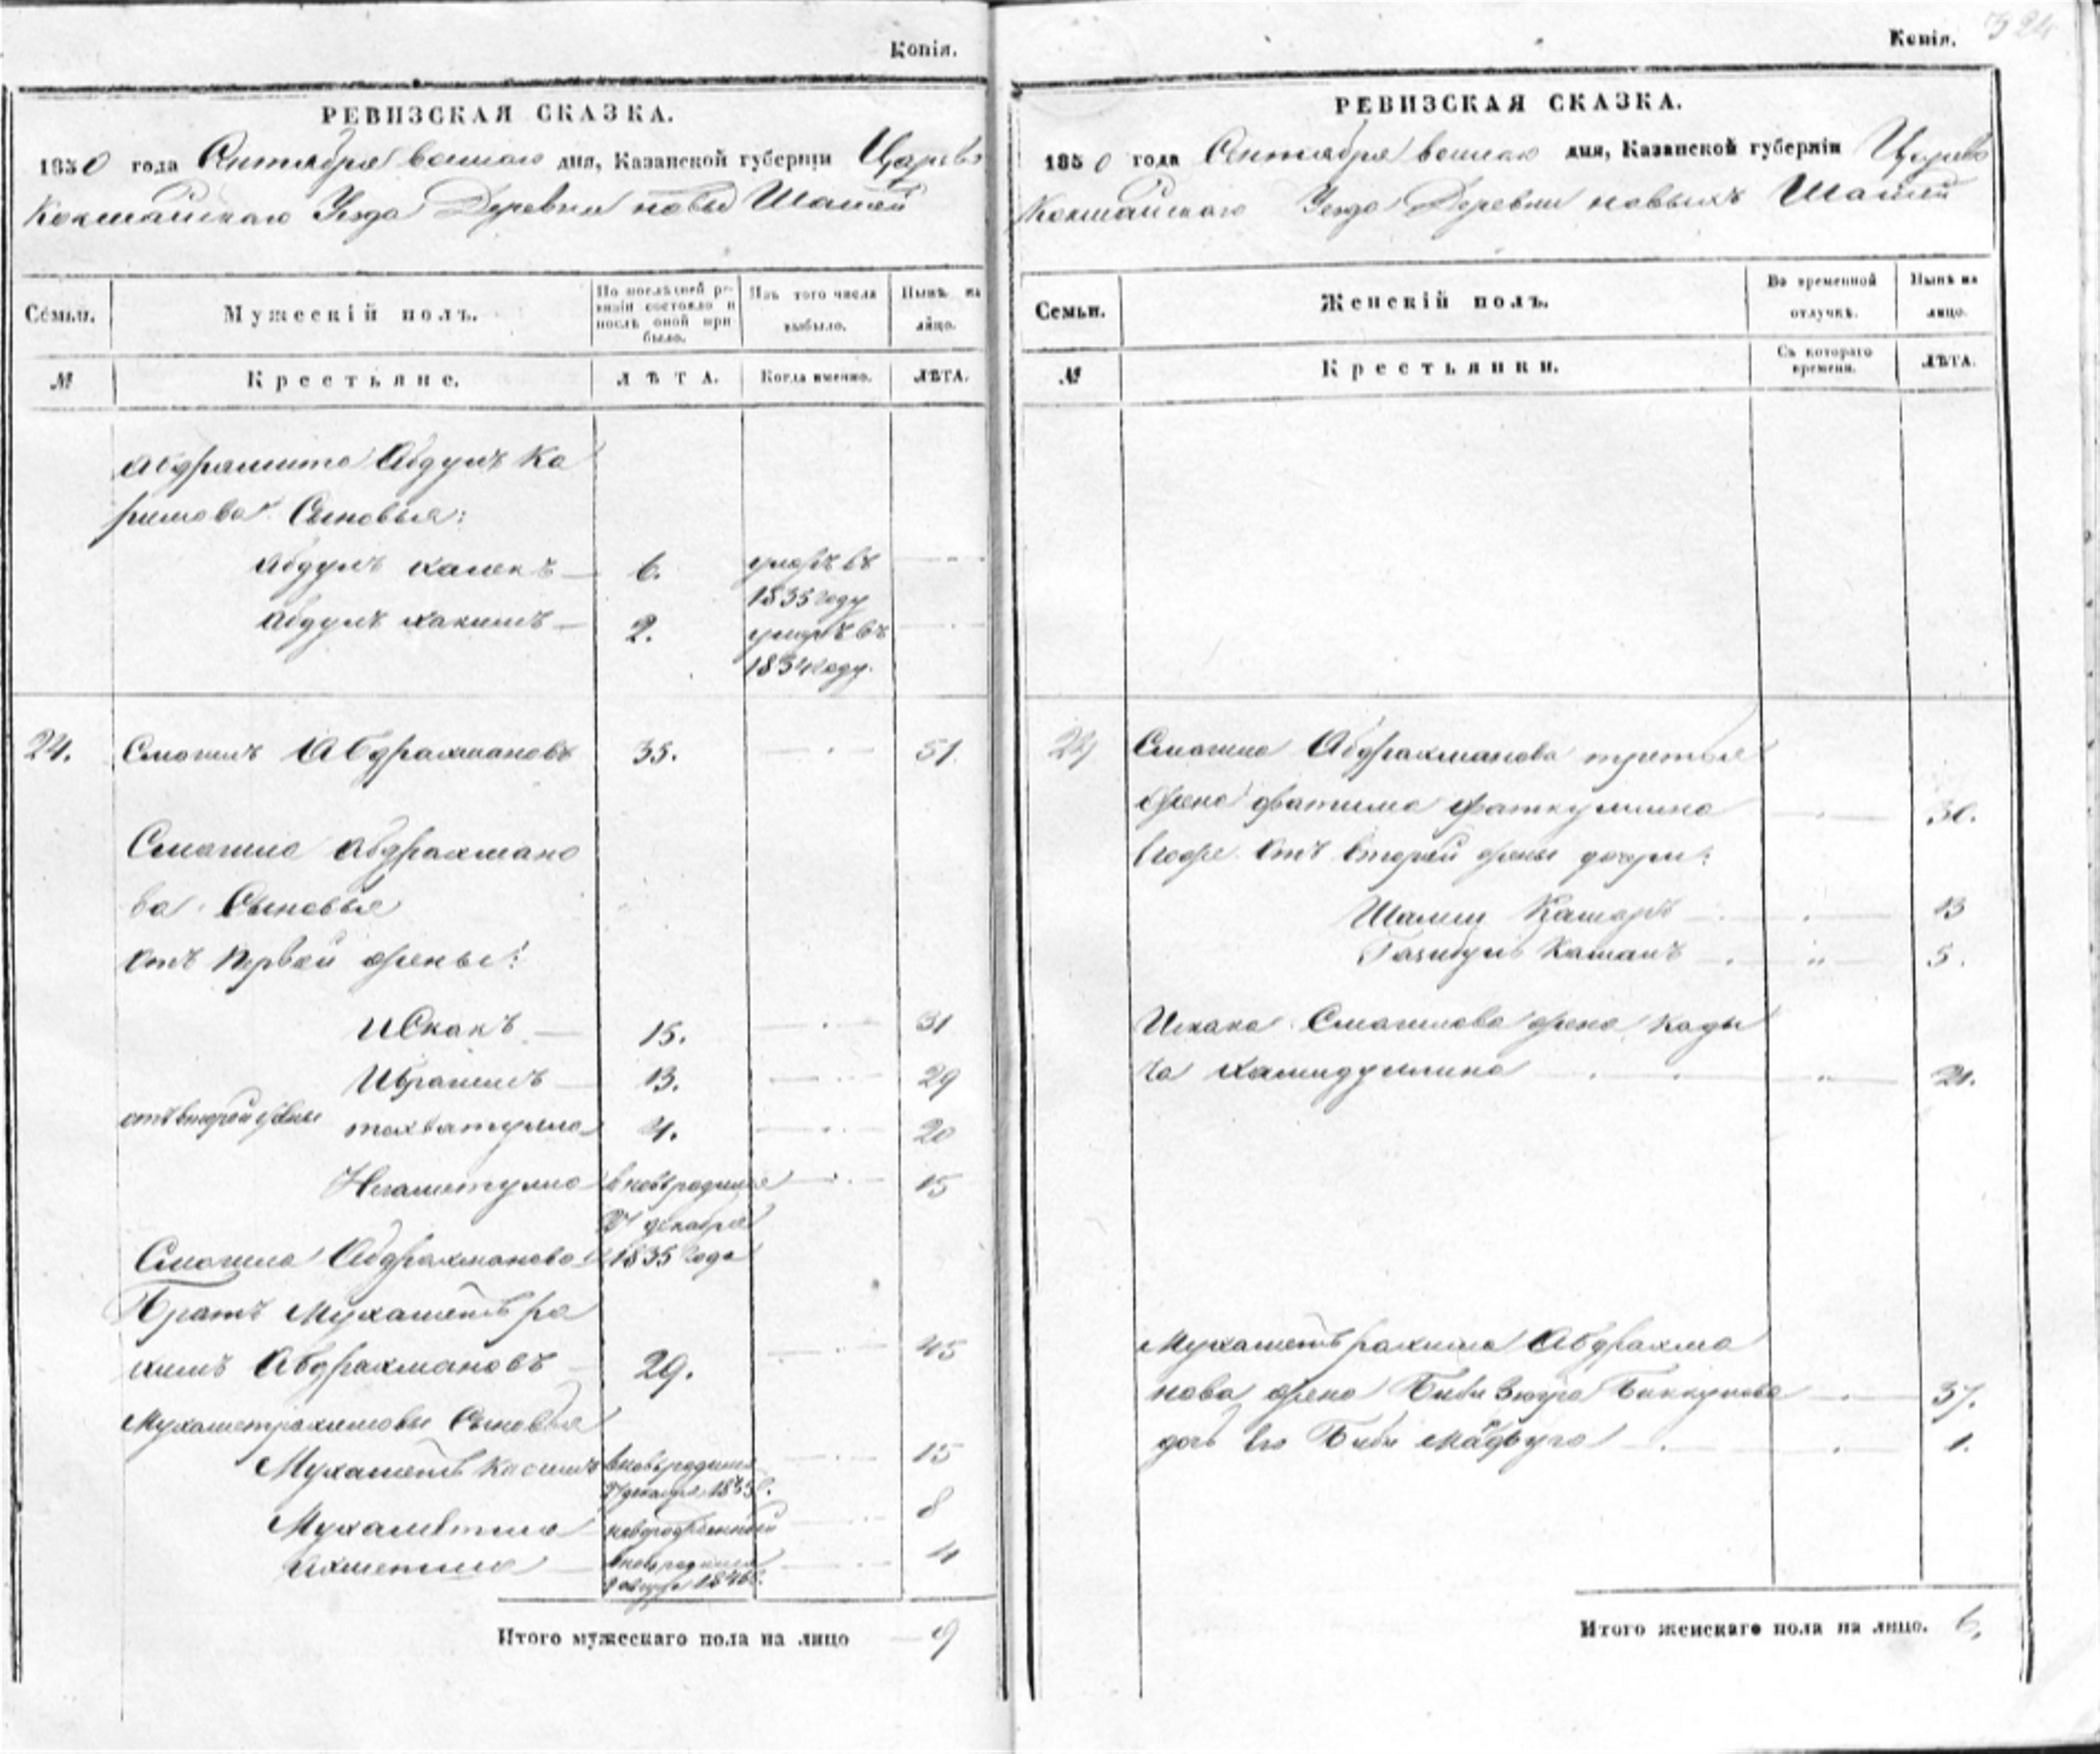 Копія.
РЕВИЗСКАЯ СКАЗКА.
1850 года Сентября дня, Казанской губерніи Царево
Кокшайскаго Уезда Деревни новы Шашей
Семьи.
Мужескій полъ.
По послѣдней ре-
визіи состояло и
послѣ оной при
было.
Изъ того числа
выбыло.
Нынѣ на
лицо.
№
Крестьяне.
ЛѢТА.
Когда именно.
ЛѢТА.
Абдулъ Ка
римова Сыновья:
Абдулъ халекъ 6. умеръ въ
1835 году
Абдулъ хакимъ 2. умеръ въ
1834 году.
24. Смагилъ Абдрахмановъ 35. 51.
Смагила Абдрахмано
ва Сыновья
отъ первой жены:
Искакъ 15. 31
Ибрагимъ 13. 29
отъ второй жены 4. 20
Негаметулла вновь родился 15
27 декабря
Смагила Абдрахманова 1835 года
Братъ Мухаметъ ра
химъ Абдрахмановъ 29. 45
Мухаметрахимовы Сыновья
Мухаметъ касимъ вновь родился 15
27 декабря 1835 г.
8
Ахметша вновь родился 4
1846 г.
Итого мужескаго пола на лицо 9
324
Копія.
РЕВИЗСКАЯ СКАЗКА.
1850 года Сентября дня, Казанской губерніи Царево
Кокшайскаго Уезда Деревни новыхъ Шашей
Семьи.
Женскій полъ.
Во временной
отлучкѣ.
Нынѣ на
лицо.
№
Крестьянки.
Съ котораго
времени.
ЛѢТА.
24 Смагила Абдрахманова третья
жена фатима фаткуллина 30.
отъ второй жены дочери:
Шамси Камаръ 13
Камалъ 5.
Искака Смагилова жена Кады
ча хамидуллина 21.
Мухаметъ рахима Абдрахма
нова жена Биби Зюгра Биккулова 37.
дочь его Биби 1.
Итого женскаго пола на лицо. 6.